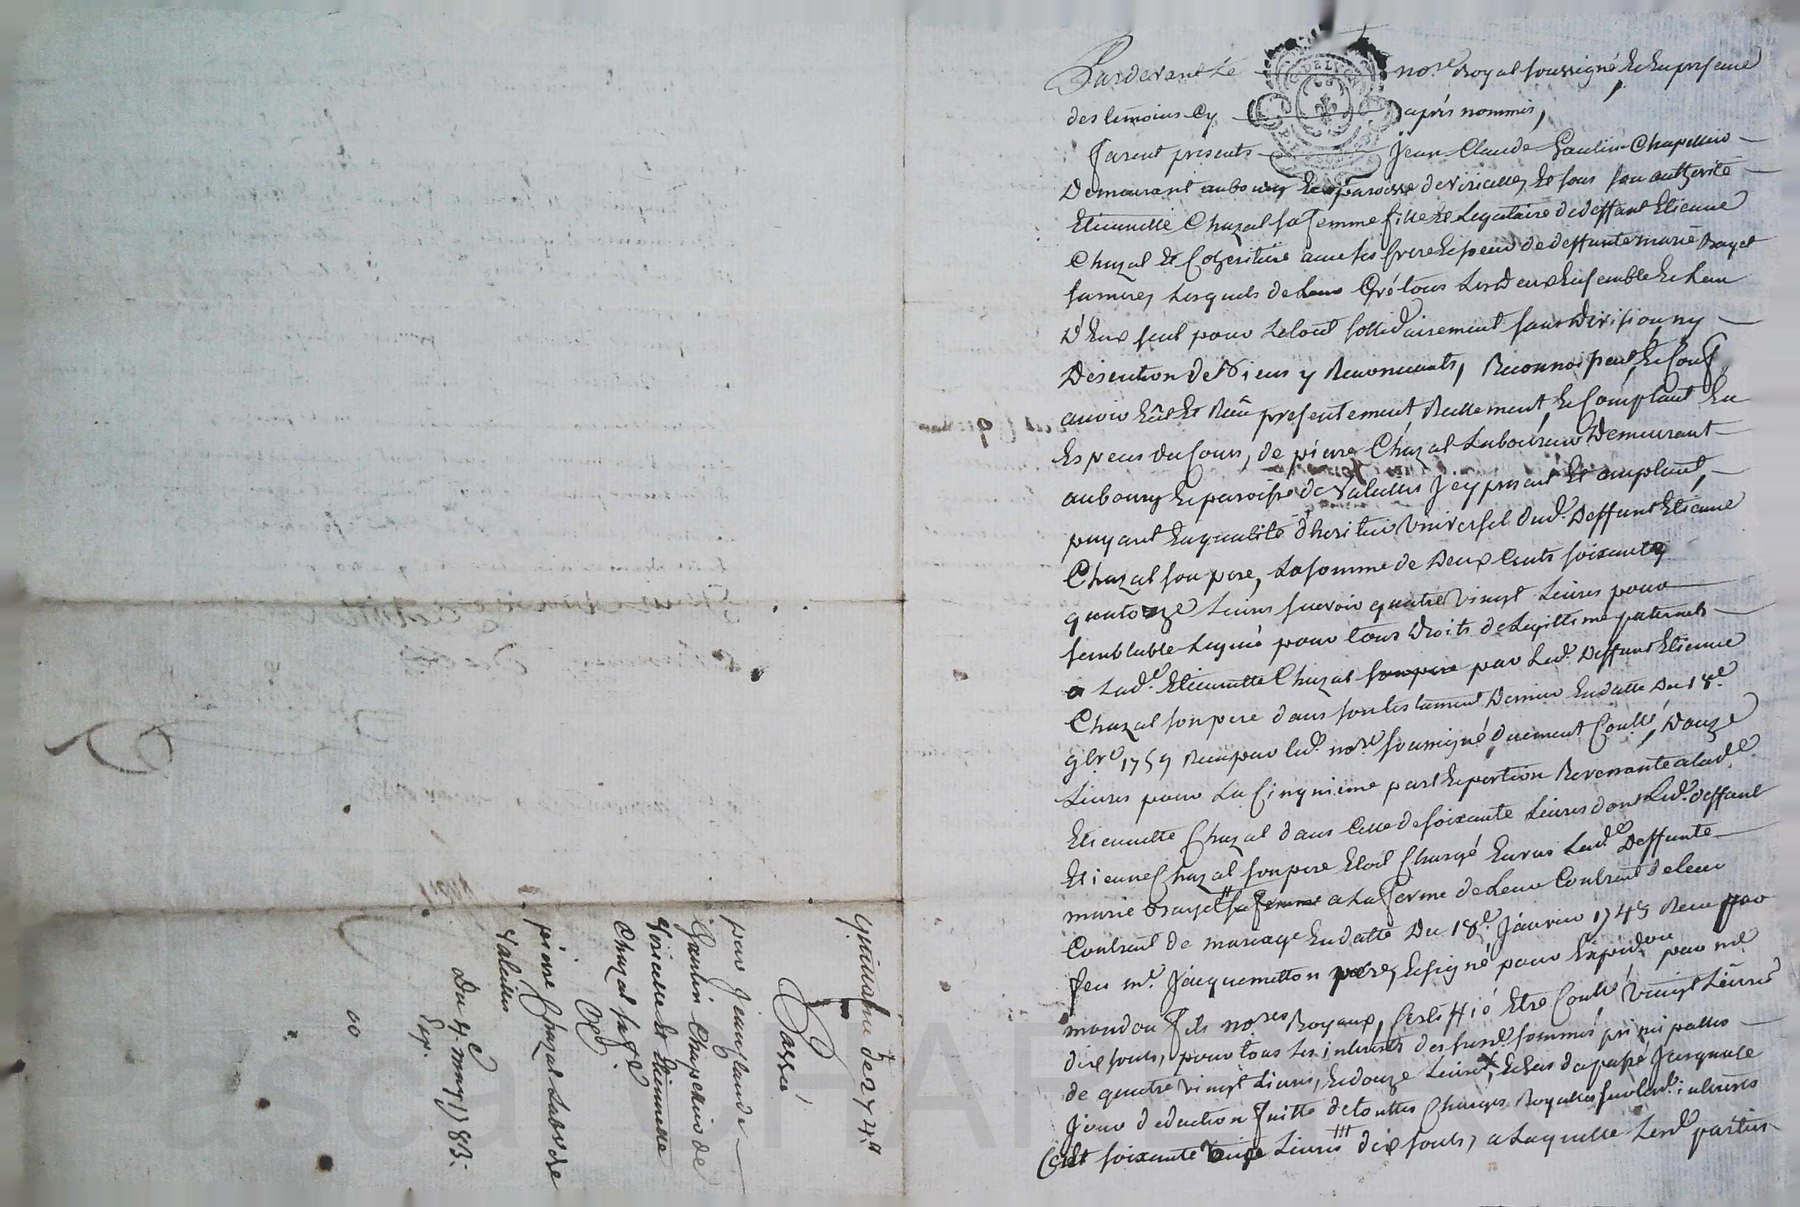 Pardevant Le no.re Royal soussigné, Et En presence
des temoins Cy après nommés,
furent presents Jean Claude Gaulin Chapellier
Demeurant au bourg Et paroisse de viricelles Et sous son authorité
Etiennette Chazal sa femme fille Et Legataire de deffunt Etienne
Chazal Et Coheritiere avec ses frere Et soeur de deffunte marie Bayet
sa mere, Lesquels de Leur Gré tous Les Deux Ensemble Et L'un
D'Eux seul pour Le tout sollidairement sans Division ny
Discution de Biens y Renonceants, Reconnoissent, Et Conf.
avoir Eüe Et Reçu presentement Reellement, Et Comptant En
Especes du Cours, de pierre Chazal Laboureur Demeurant
au bourg Et paroisse de Valeilles Icy present Et acceptant,
payant En qualité d'heritier Universel dud. Deffunt Etienne
Chazal son pere, La somme de Deux Cents soixante
quatorze Livres sçavoir quatre vingt Livres pour
semblable Legué pour tous Droits de Legittime paternels
a Lad.e Etiennette Chazal son pere par Led. Deffunt Etienne
Chazal son pere dans son testament Dernier En datte Du 18.e
9bre 1759 Reçu par led. no.re soussigné, duement Coullé, Douze
Livres pour La Cinquieme part Et portion Revenante a lad.e
Etiennette Chazal dans Celle de soixante Livres dont Led. deffunt
Etienne Chazal son pere Etoit Chargé Envers Lad.e Deffunte
marie Bayet sa femme a La forme de Leur Contract de Leur
Contract de mariage En datte Du 18.e Janvier 1745 Reçu par
feu m.e Jacquemetton pere, Et signé pour Expedition par m.e
mondon fils no.res Royaux, Certiffié Etre Coullé, Vingt Livres
dix souls, pour tous Les interets des susd. sommes principalles
de quatre vingt Livres, Et douze Livres, Echus du passé Jusqu'a Ce
Jour deduction faitte de touttes Charges Royalles sur Lesd. interets
Cent soixante Livres dix souls, a Laquelle Lesd. parties
Quittance de 274#
Passé
par Jean Claude
Gaulin Chapellier de
Voiricelle Et Etiennette
Chazal sa f.e
a
pierre Chazal Lab.r de
Valeilles
Du 4.e may 1783.
Exp.